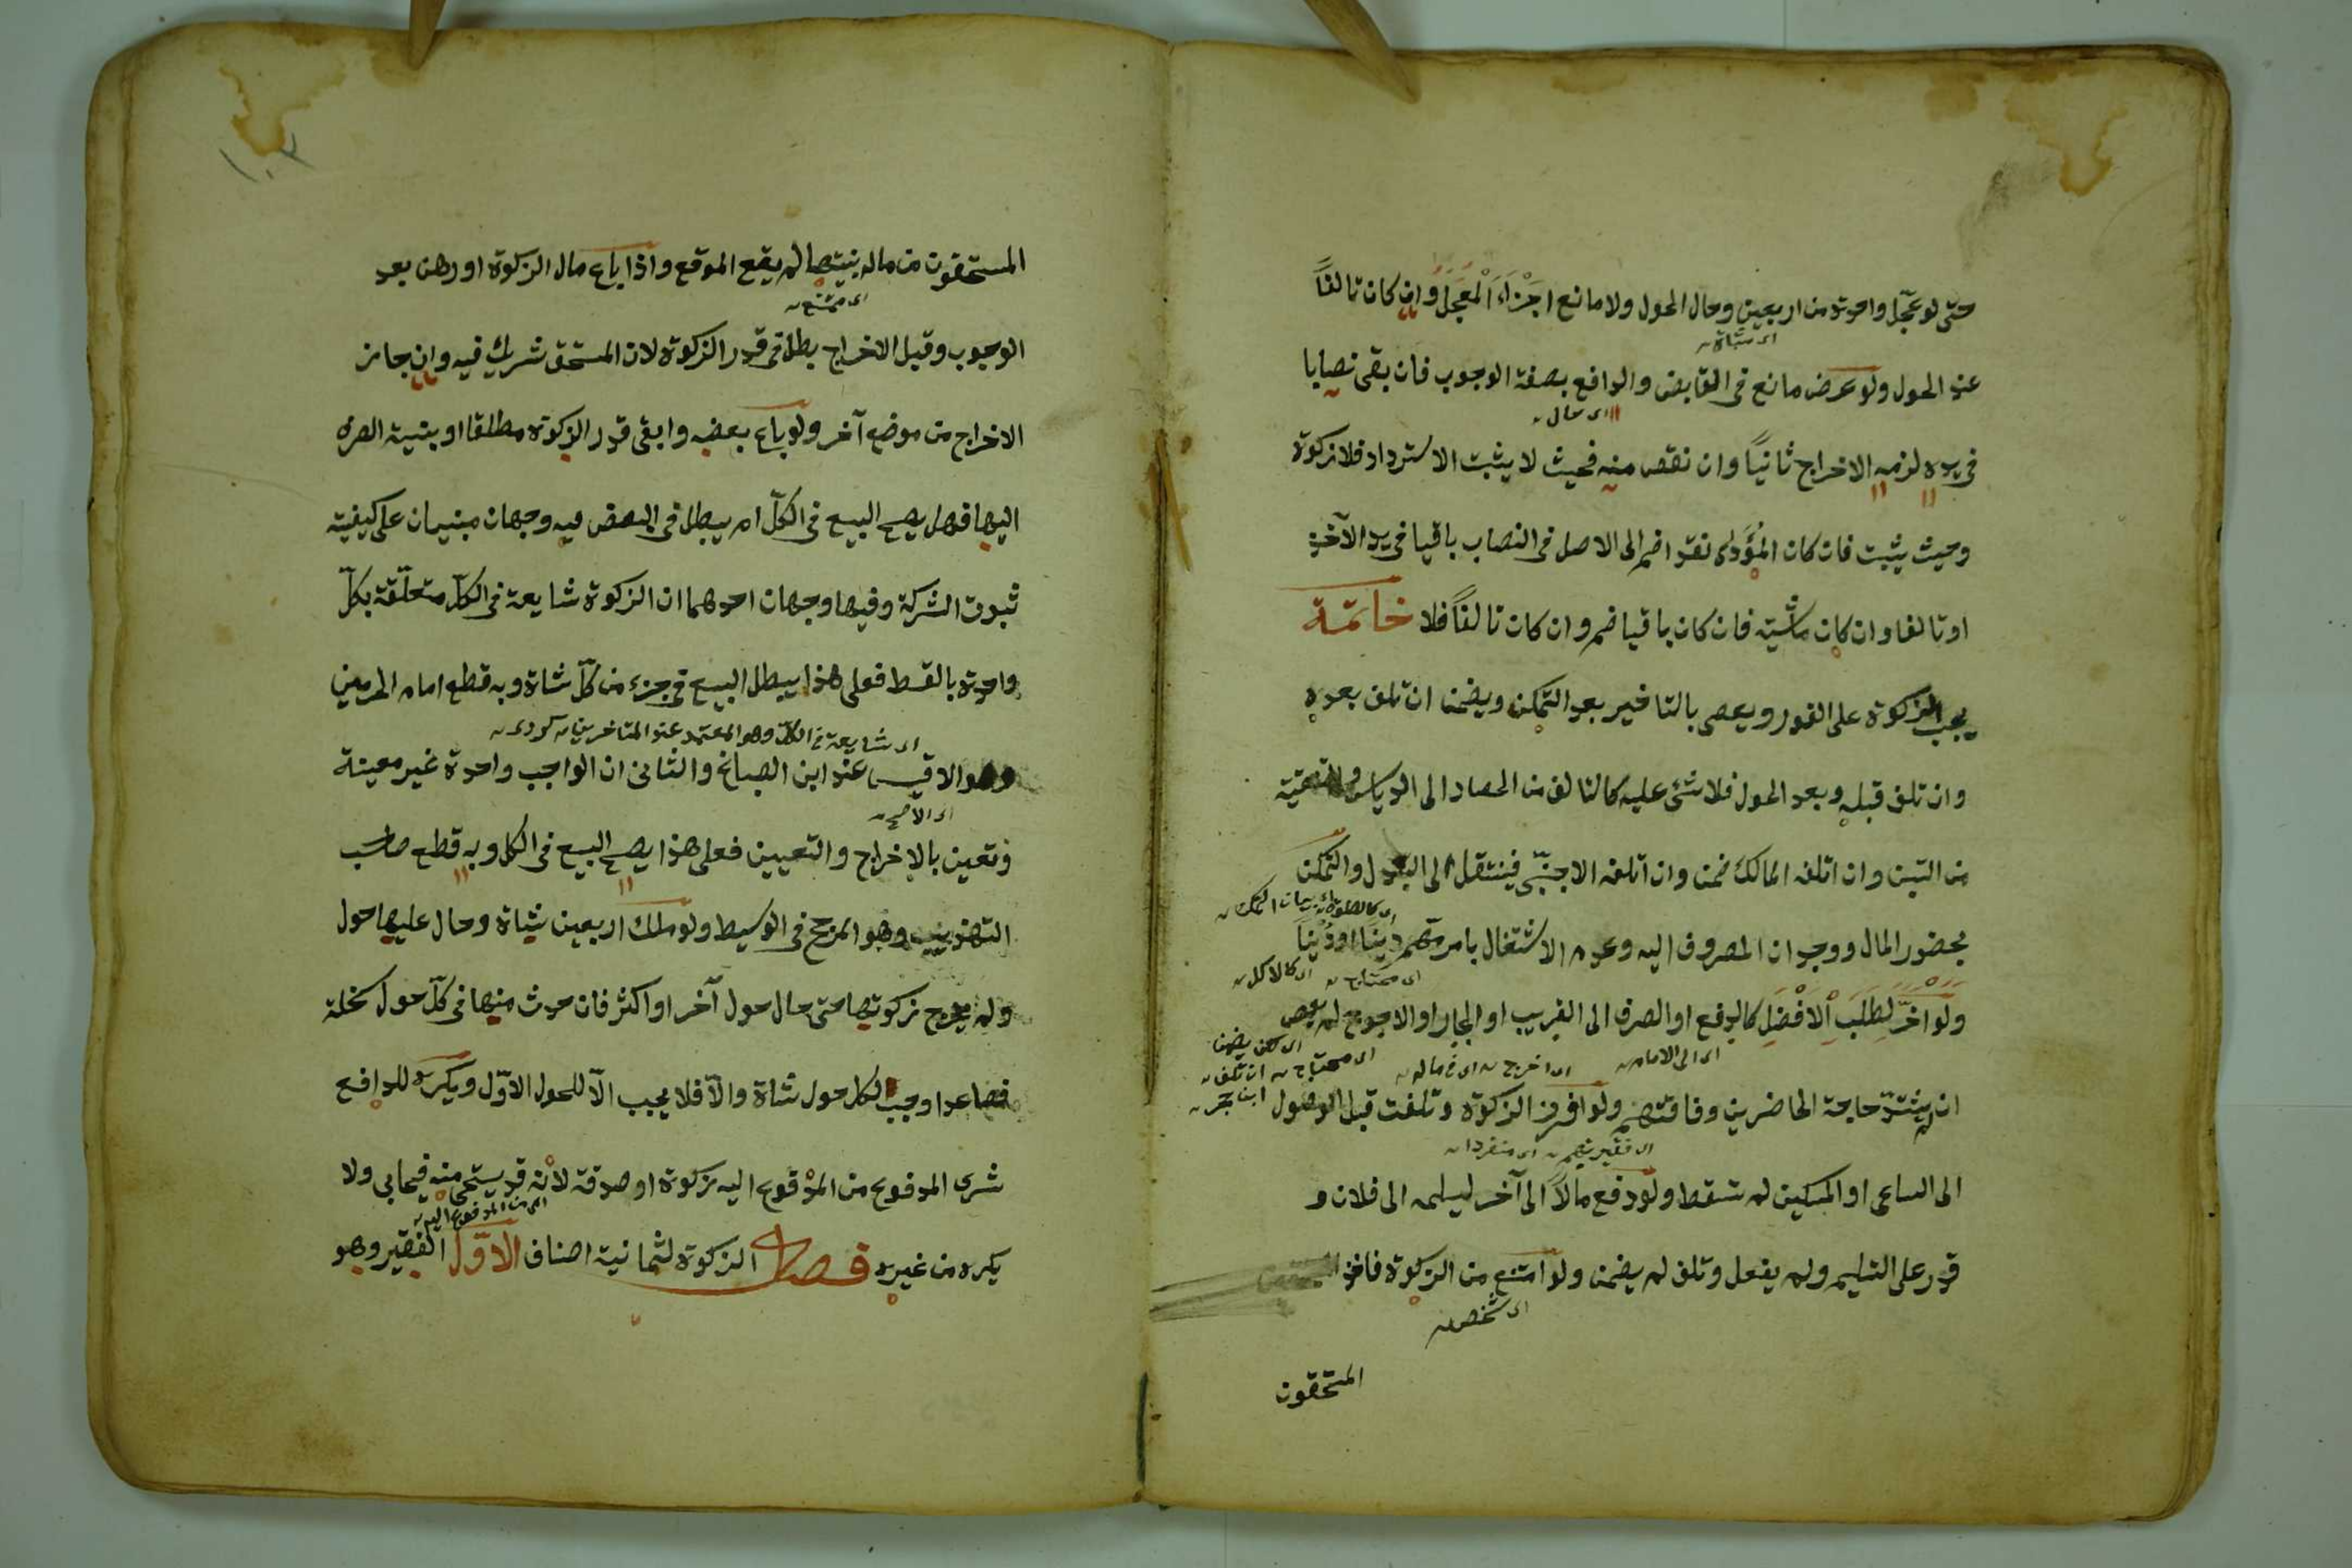 حتى لو عجّل واحدة من اربعين وحال الحول ولا مانع اجزاء المعجل وان كان تالفًا
اى شاة
عند الحول ولو عرض مانع فى القابض والدافع بصفة الوجوب فان بقى نصابا
اى مال
فى يده لزمه الاخراج ثانيًا وان نقص منه فحيث لا يثبت الاسترداد فلا زكوة
وحيث يثبت فان كان المؤدى نقدا ضم الى الاصل فى النصاب باقيا فى يد الآخذ
او تالفا وان كان ماشية فان كان باقيا ضم وان كان تالفًا فلا خاتمة
يجب الزكوة على الفور ويعصى بالتاخير بعد التمكن ويضمن ان تلف بعده
وان تلف قبله وبعد الحول فلا شئ عليه كالتالف من الحصاد الى الدياس والتنقية
من التبن وان اتلفه المالك ضمن وان اتلفه الاجنبّى فينتقل الى البدل والتمكن
بحضور المال ووجدان المصروف اليه وعدم الاشتغال بامر مهم دينًا او دُنيًا
اى كالاكل
اى محتاج
ولو اخرّ لطلب الافضل كالدفع او الصرف الى القريب او الجار او الاحوج لم يعص
اى الى الامام
اى اخرج اى من ماله
اى محتاج
اى لكن يضمن
ان تلف
ابن حجر
ان لم يشتدّ حاجة الحاضرين وفاقتهم ولو افرز الزكوة وتلفت قبل الوصول
اى فقيرهم
اى منفردا
الى الساعى او المسكين لم تسقط ولو دفع مالاً الى آخر ليسلمه الى فلان و
قدر على التسليم ولم يفعل وتلف لم يضمن ولو امتنع من الزكوة فاخذ
اى شخص
المستحقون
١٠٣
المستحقون من ماله بنيتها لم يقع الموقع واذا باع مال الزكوة او رهن بعد
اى ممتنع
الوجوب وقبل الاخراج بطل فى قدر الزكوة لان المستحق شريك فيه وان جاز
الاخراج من موضع آخر ولو باع بعضه وابقى قدر الزكوة مطلقا او بنية الصرف
اليها فهل يصح البيع فى الكلّ ام يبطل فى البعض فيه وجهان مبنيان على كيفية
ثبوت الشركة وفيها وجهان احدهما ان الزكوة شايعة فى الكلّ متعلّقة بكلّ
واحدة بالقسط فعلى هذا يبطل البيع فى جزء من كلّ شاة وبه قطع امام الحرمين
اى شايعة فى الكل وهو المعتمد عند المتاخرين كردى
وهو الاقيس عند ابن الصباغ والثانى ان الواجب واحدة غير معينة
اى الأصح
وتعين بالاخراج والتعيين فعلى هذا يصح البيع فى الكل وبه قطع صاحب
التهذيب وهو المرجح فى الوسيط ولو ملك اربعين شاة وحال عليها حول
ولم يخرج زكوتها حتى حال حول آخر او اكثر فان حدث منها فى كلّ حول سخلة
فصاعدا وجب لكل حول شاة والاّ فلا يجب الاّ للحول الاوّل ويكره للدافع
شرى المدفوع من المدفوع اليه زكوة او صدقة لانه قد يستحى منه فيحابى ولا
اى من المدفوع اليه
يكره من غيره فصل الزكوة لثمانية اصناف الاوّل الفقير وهو